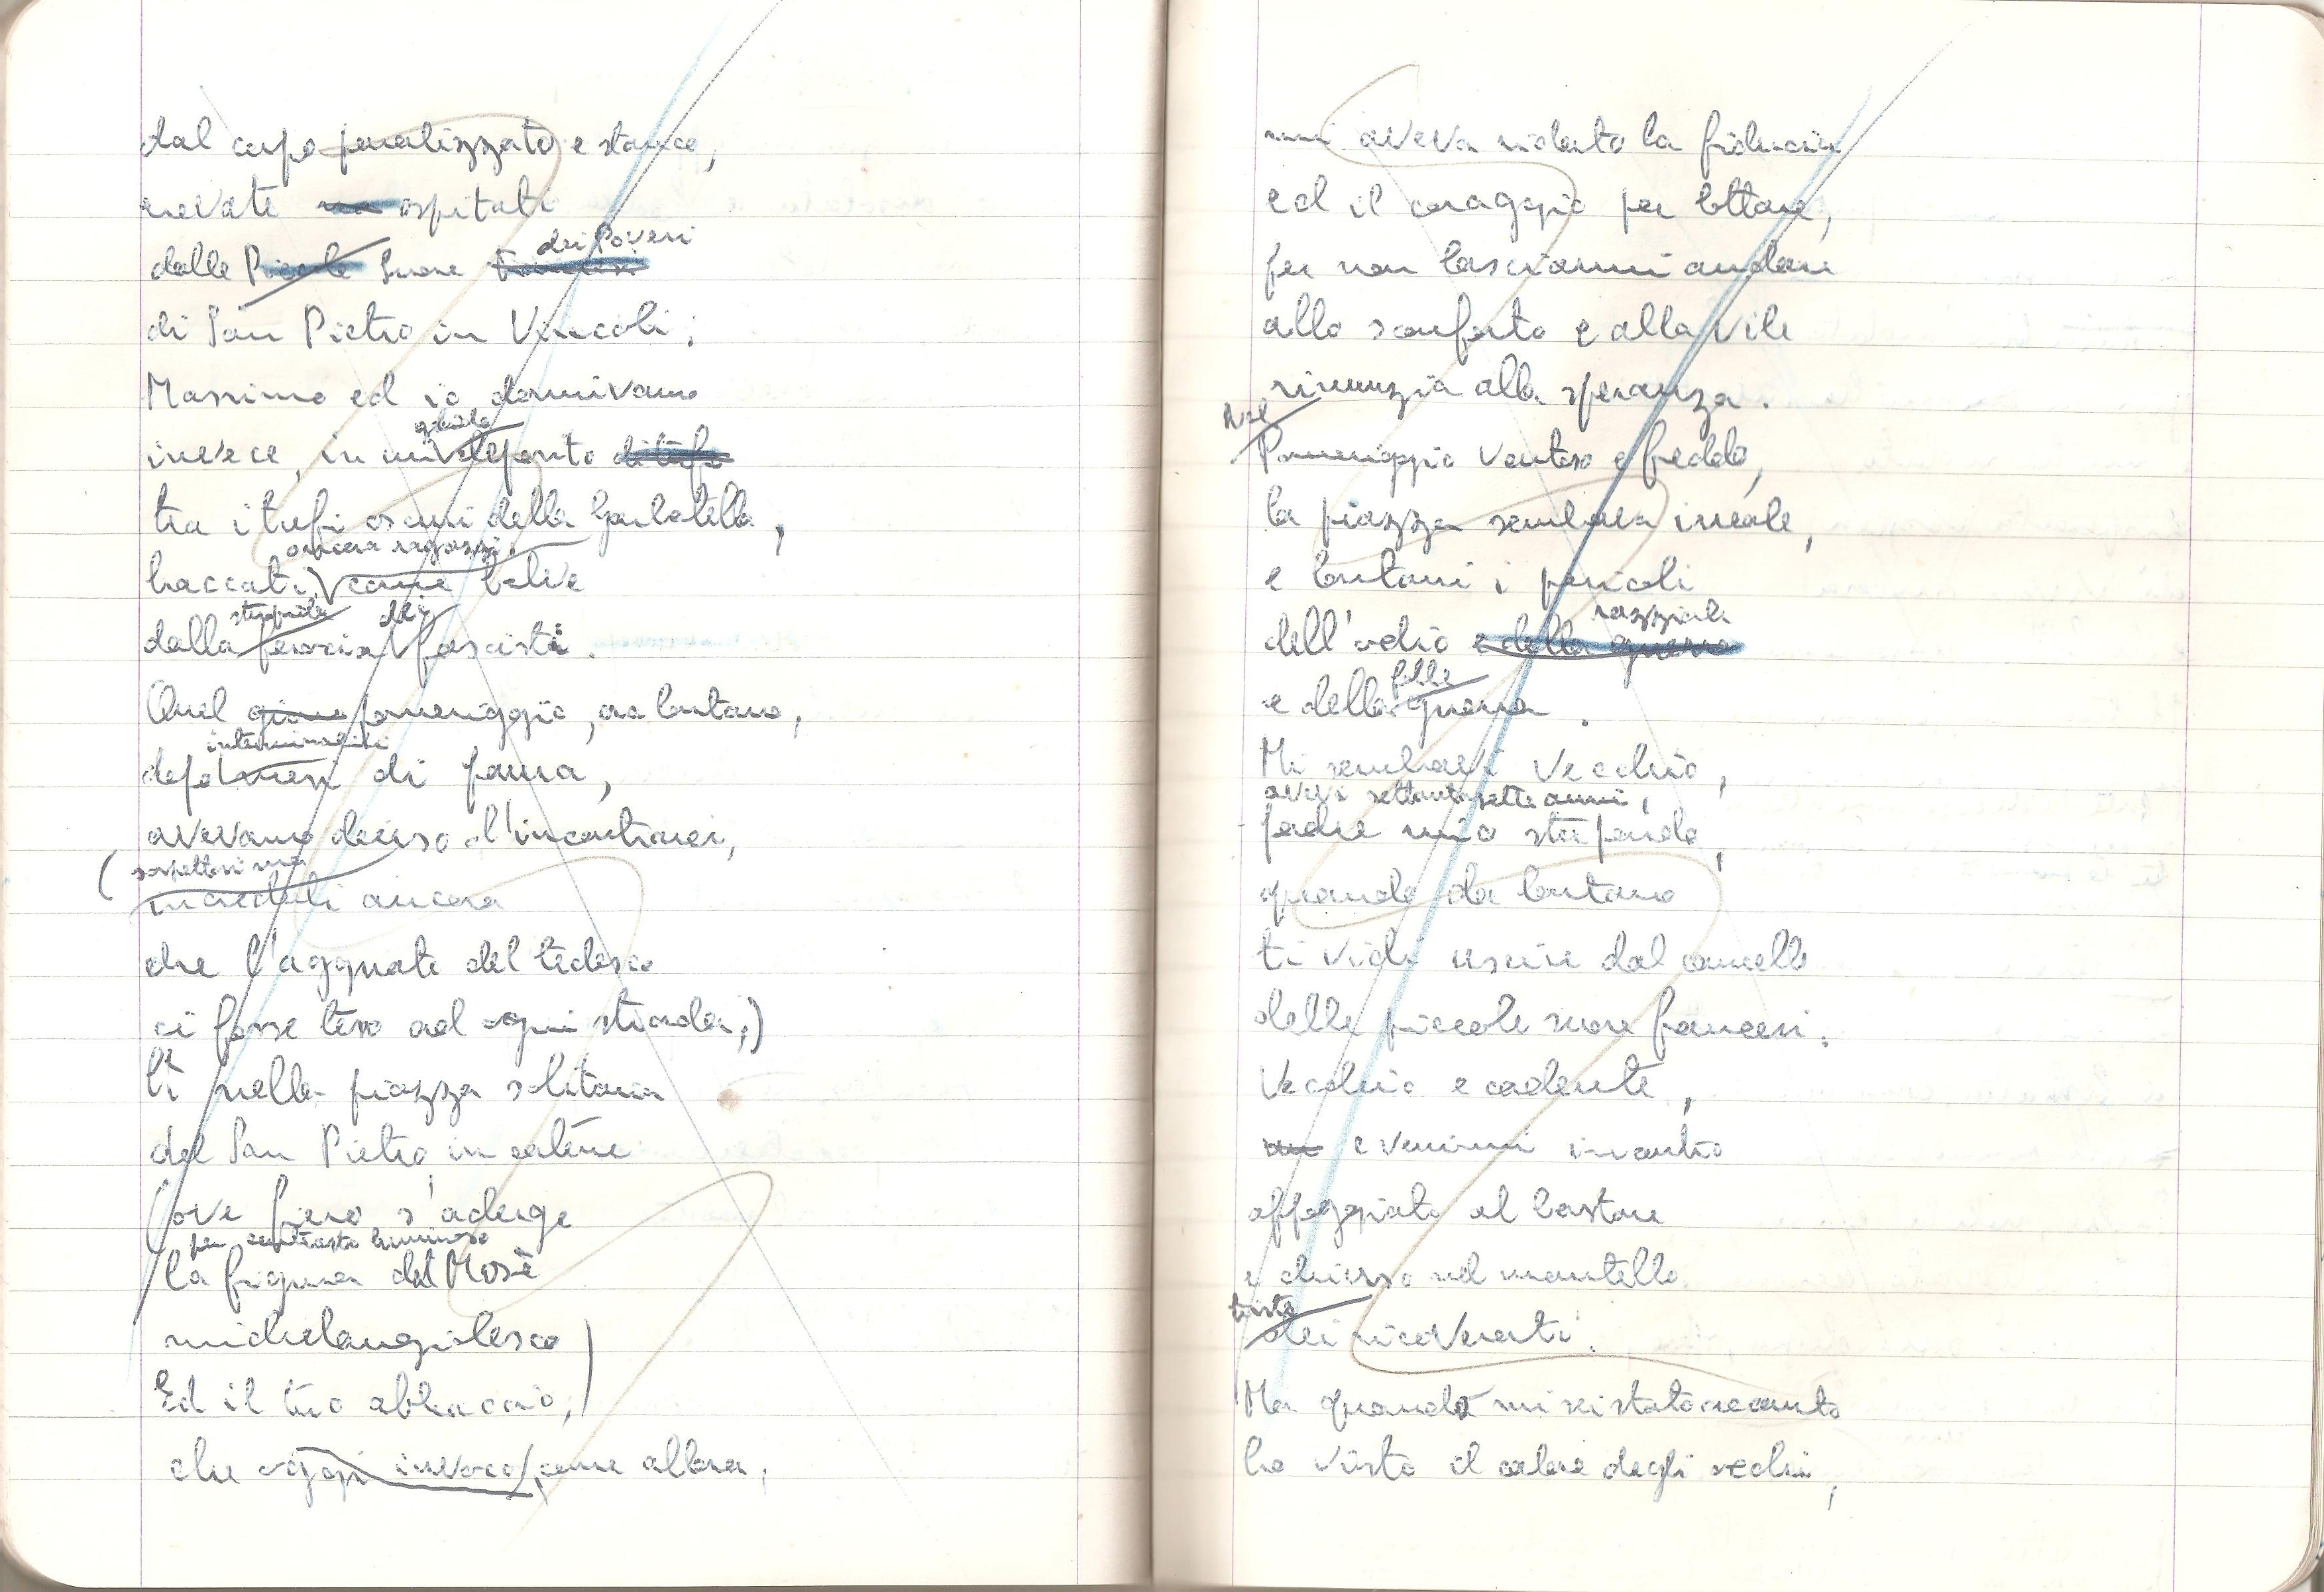 dal corpo paralizzato e stanco,
eravate ospitati
dei Poveri
delle Piccole Suore Francesi
di San Pietro in Vincoli;
Massimo ed io dormivamo
gelido
invece, in un deposito di tufo
tra i tufi oscuri della Garbatella,
ancora ragazzi,
braccati, come belve
stupida dei
dalla ferocia fascisti.
Quel giorno pomeriggio, ora lontano,
interminabili
dopo mesi di paura,
avevamo deciso d'incontrarci,
(sospettosi ma
increduli ancora
che l'agguato del tedesco
ci fosse teso ad ogni strada;)
lì nella piazza solitaria
del San Pietro in catene
(ove fiero s'aderge
per contrasto luminoso
la figura del Mosè
michelangiolesco)
Ed il tuo abbraccio,
che oggi invoco, come allora,
mi aveva ridato la fiducia
ed il coraggio per lottare,
per non lasciarmi andare
allo sconforto e alla vile
rinunzia alla speranza.
Nel
Pomeriggio ventoso e freddo,
la piazza sembrava irreale,
e lontani i pericoli
razziale
dell'odio e della guerra
folle
e della guerra.
Mi sembravi vecchio,
avevi settantasette anni,
padre mio stupendo,
quando da lontano
ti vidi uscire dal cancello
delle piccole suore francesi.
Vecchio e cadente,
e venirmi incontro
appoggiato al bastone
e chiuso nel mantello
triste
dei ricoverati.
Ma quando mi sei stato accanto
ho visto il colore degli occhi,